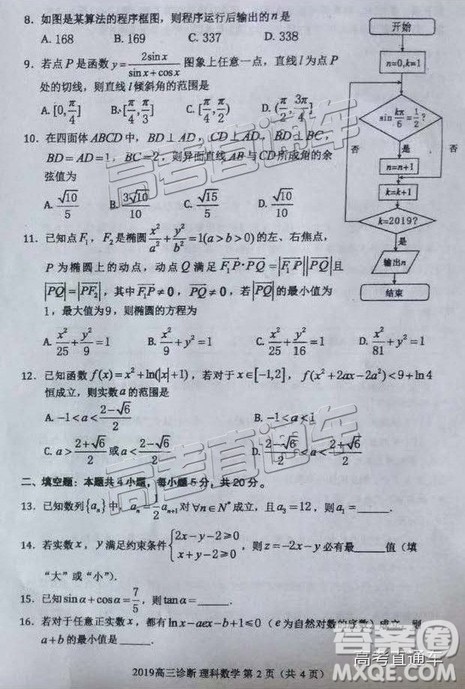 8. 如图是某算法的程序框图，则程序运行后输出的n是
A. 168 B. 169 C. 337 D. 338
9. 若点P是函数y=2sinx/(sinx+cosx)图象上任意一点，直线l为点P
处的切线，则直线l倾斜角的范围是
A. [0,π/4] B. [π/4,π/3] C. [π/4,π/2) D. (π/2,3π/4]
10. 在四面体ABCD中，BD⊥AD，CD⊥AD，BD⊥BC，
BD=AD=1，BC=2，则异面直线AB与CD所成角的余
弦值为
A. √10/5 B. 3√10/10 C. √15/5 D. √10/10
11. 已知点F₁，F₂是椭圆x²/a²+y²/b²=1(a>b>0)的左、右焦点，
P为椭圆上的动点，动点Q满足F₁P·PQ=|F₁P||PQ|且
|PQ|=|PF₂|，其中F₁P≠0，PQ≠0，若|PQ|的最小值为
1，最大值为9，则椭圆的方程为
A. x²/25+y²/9=1 C. x²/25+y²/16=1 D. x²/81+y²=1
12. 已知函数f(x)=x²+ln(|x|+1)，若对于x∈[-1,2]，f(x²+2ax-2a²)<9+ln4
恒成立，则实数a的范围是
A. -1<a<(2-√6)/2 B. -1<a<1
C. a>(2+√6)/2或a<(2-√6)/2 D. (2-√6)/2<a<(2+√6)/2
二、填空题：本题共4小题，每小题5分，共20分。
13. 已知数列{aₙ}中，aₙ=½aₙ₊₁对∀n∈N*成立，且a₃=12，则a₁=____.
14. 若实数x，y满足约束条件{2x-y-2≥0
x+y-2≥0，则z=-2x-y必有最____值（填
“大”或“小”）.
15. 已知sinα+cosα=7/5，则tanα=____.
16. 若对于任意正实数x，都有lnx-aex-b+1≤0（e为自然对数的底数）成立，则
a+b的最小值是____.
2019高三诊断 理科数学 第2页（共4页）
开始
n=0,k=1
sin kπ/6=1/2?
否 是 否
n=n+1
k=k+1
k=2019?
是
输出n
结束
高考直通车
高考直通车
高考直通车
答案圈